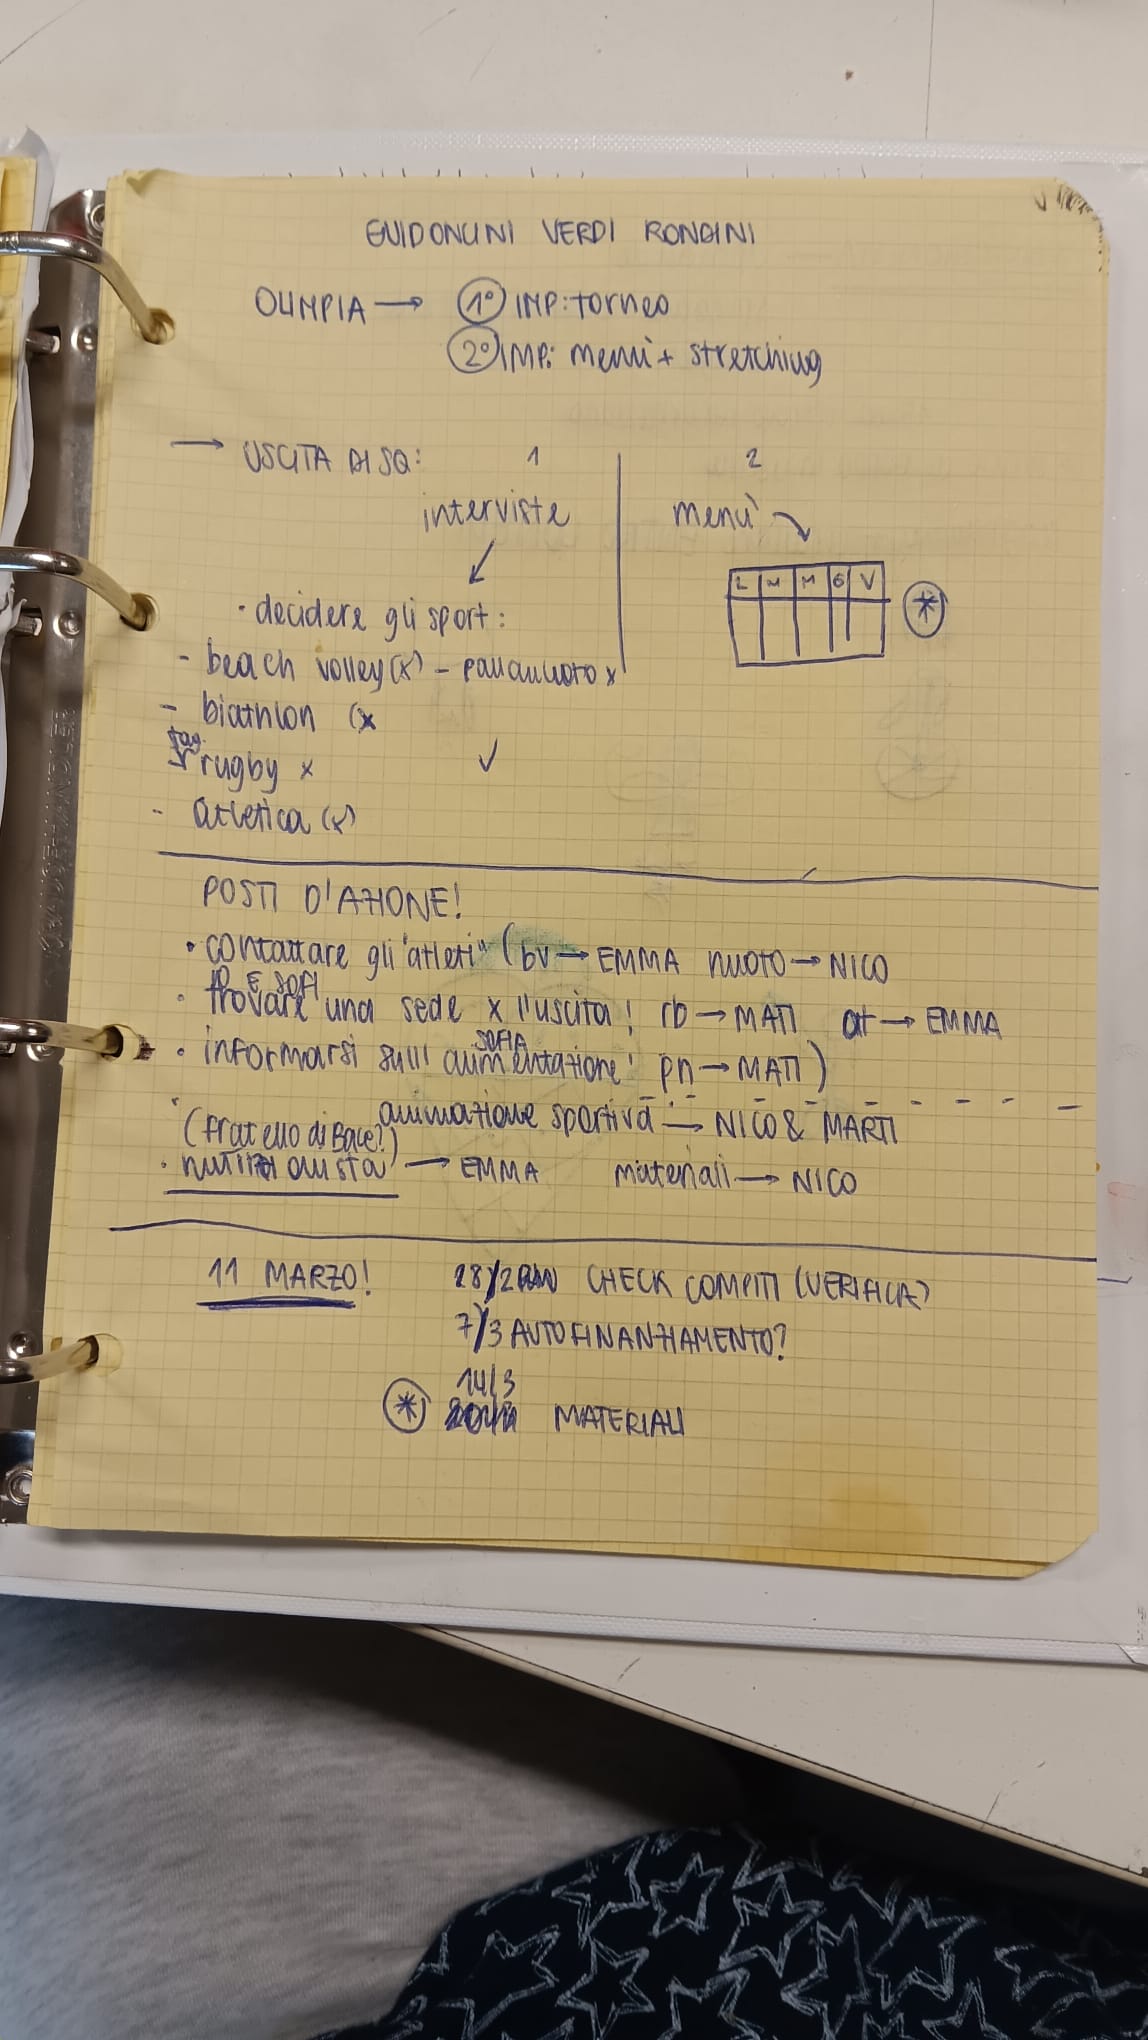 GUIDONCINI VERDI RONDINI
OLIMPIA → 1° IMP: torneo
2° IMP: menù + stretching
→ USCITA DI SQ: 1 2
interviste menù
L M M G V *
• decidere gli sport:
- beach volley (x) - pallanuoto x
- biathlon (x
tag
rugby x ✓
- atletica (x)
POSTI D'AZIONE!
• contattare gli "atleti" (bv → EMMA nuoto → NICO
IO E SOFI
• trovare una sede x l'uscita! rb → MATI at → EMMA
SOFIA
• informarsi sull'alimentazione! pn → MATI)
• animazione sportiva → NICO & MARTI
(fratello di Bace?)
• nutrizionista → EMMA materiali → NICO
11 MARZO! 28/2 CHECK COMPITI (VERIFICA)
7/3 AUTOFINANZIAMENTO?
14/3
* MATERIALI